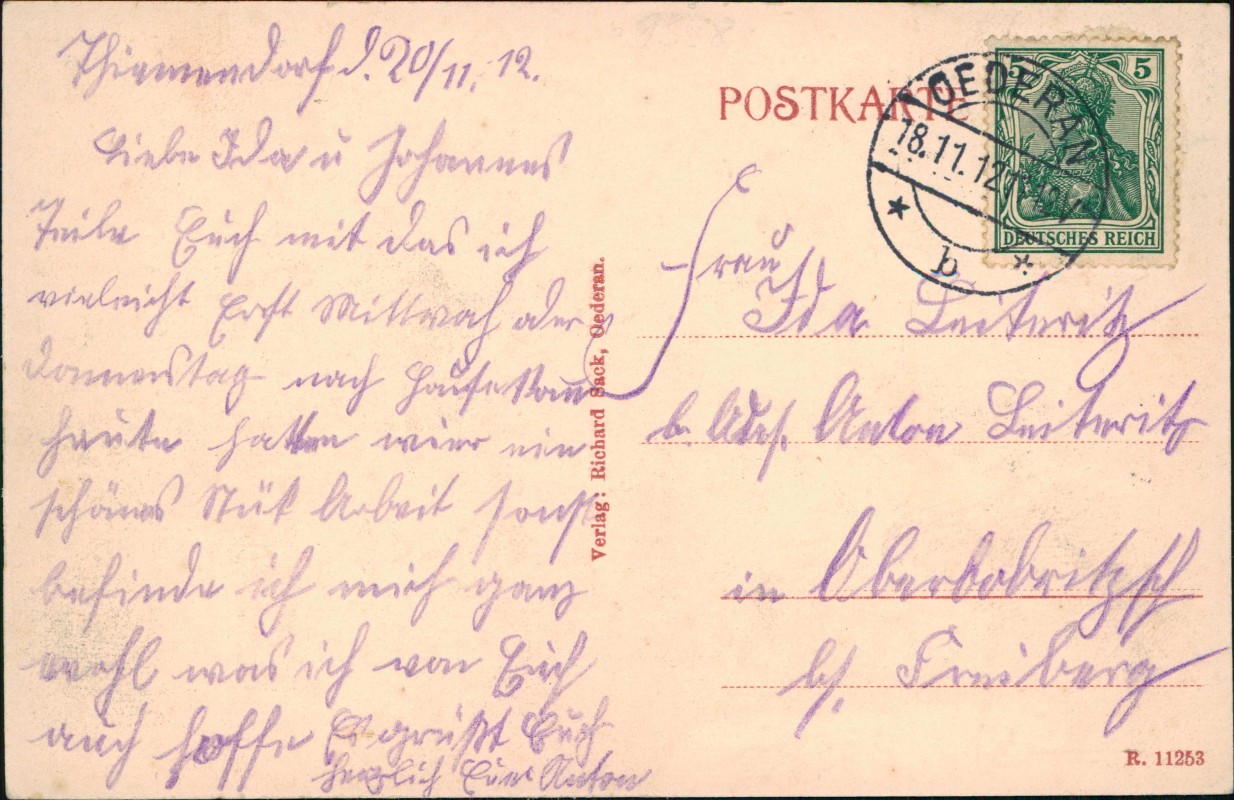 Thiemendorf d. 20/11. 12.
Liebe Ida u Johannes
Teile Euch mit das ich
vieleicht Erst Mittwoch oder
Donnerstag nach Hause kam
heute hatten wier ein
schönes Stük Arbeit sonst
befinde ich mich ganz
wohl was ich von Euch
auch hoffe Es grüßt Euch
herzlich Euer Anton
Verlag: Richard Sack, Oederan.
POSTKARTE
OEDERAN
18.11.12
* b *
5 5
DEUTSCHES REICH
Frau
Ida Leiteritz
b. Anton Leiteritz
in Oberbobritzsch
b/ Freiberg
R. 11253